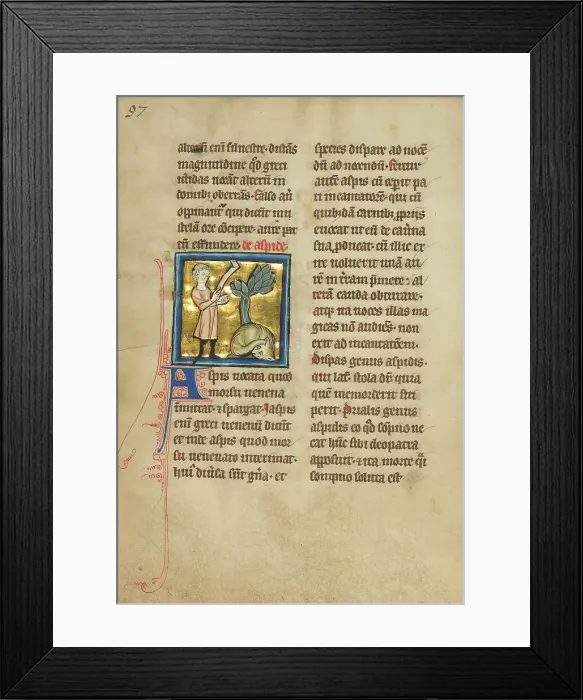 97
alterum eni funestre. distās
magnitudine qđ greci
itidas uocāt alterū in
domibz oberrās. Falso aū
opinant̄ qui dicūt mu
stelā ore cōcipere. aure par
tū effundere. de aspide.
Aspis uocata quod
morsu uenena
īmittat. ⁊ spargat. Jaspis
enī greci uenenū dicūt
et inde aspis quod mor
su uenenato interimat.
huiꝰ diuersa sūt gn̄a. et
species dispare ad nocē
dū ad nocendū. Fertur
autē aspis cū ceperit pa
ti incantatorē. qui cū
quibꝰdā carminibꝫ propriis
euocat ut eū de cauerna
sua producat. cū illic ex
ire noluerit unā au
rē in t̄ram p̄mere. al
terā cauda obturare.
atqꝫ ita uoces illas ma
gicas nō audiēs. non
exit ad incantātem.
Dispas genus aspidis.
qui lat̄. stola dr̄. quia
quē memorderit siti
perit. Prialis genus
aspidis eo qđ sōpno ne
cat hūc sibi cleopatra
apposuit. ⁊ ita morte q̄i
sompno soluta est.